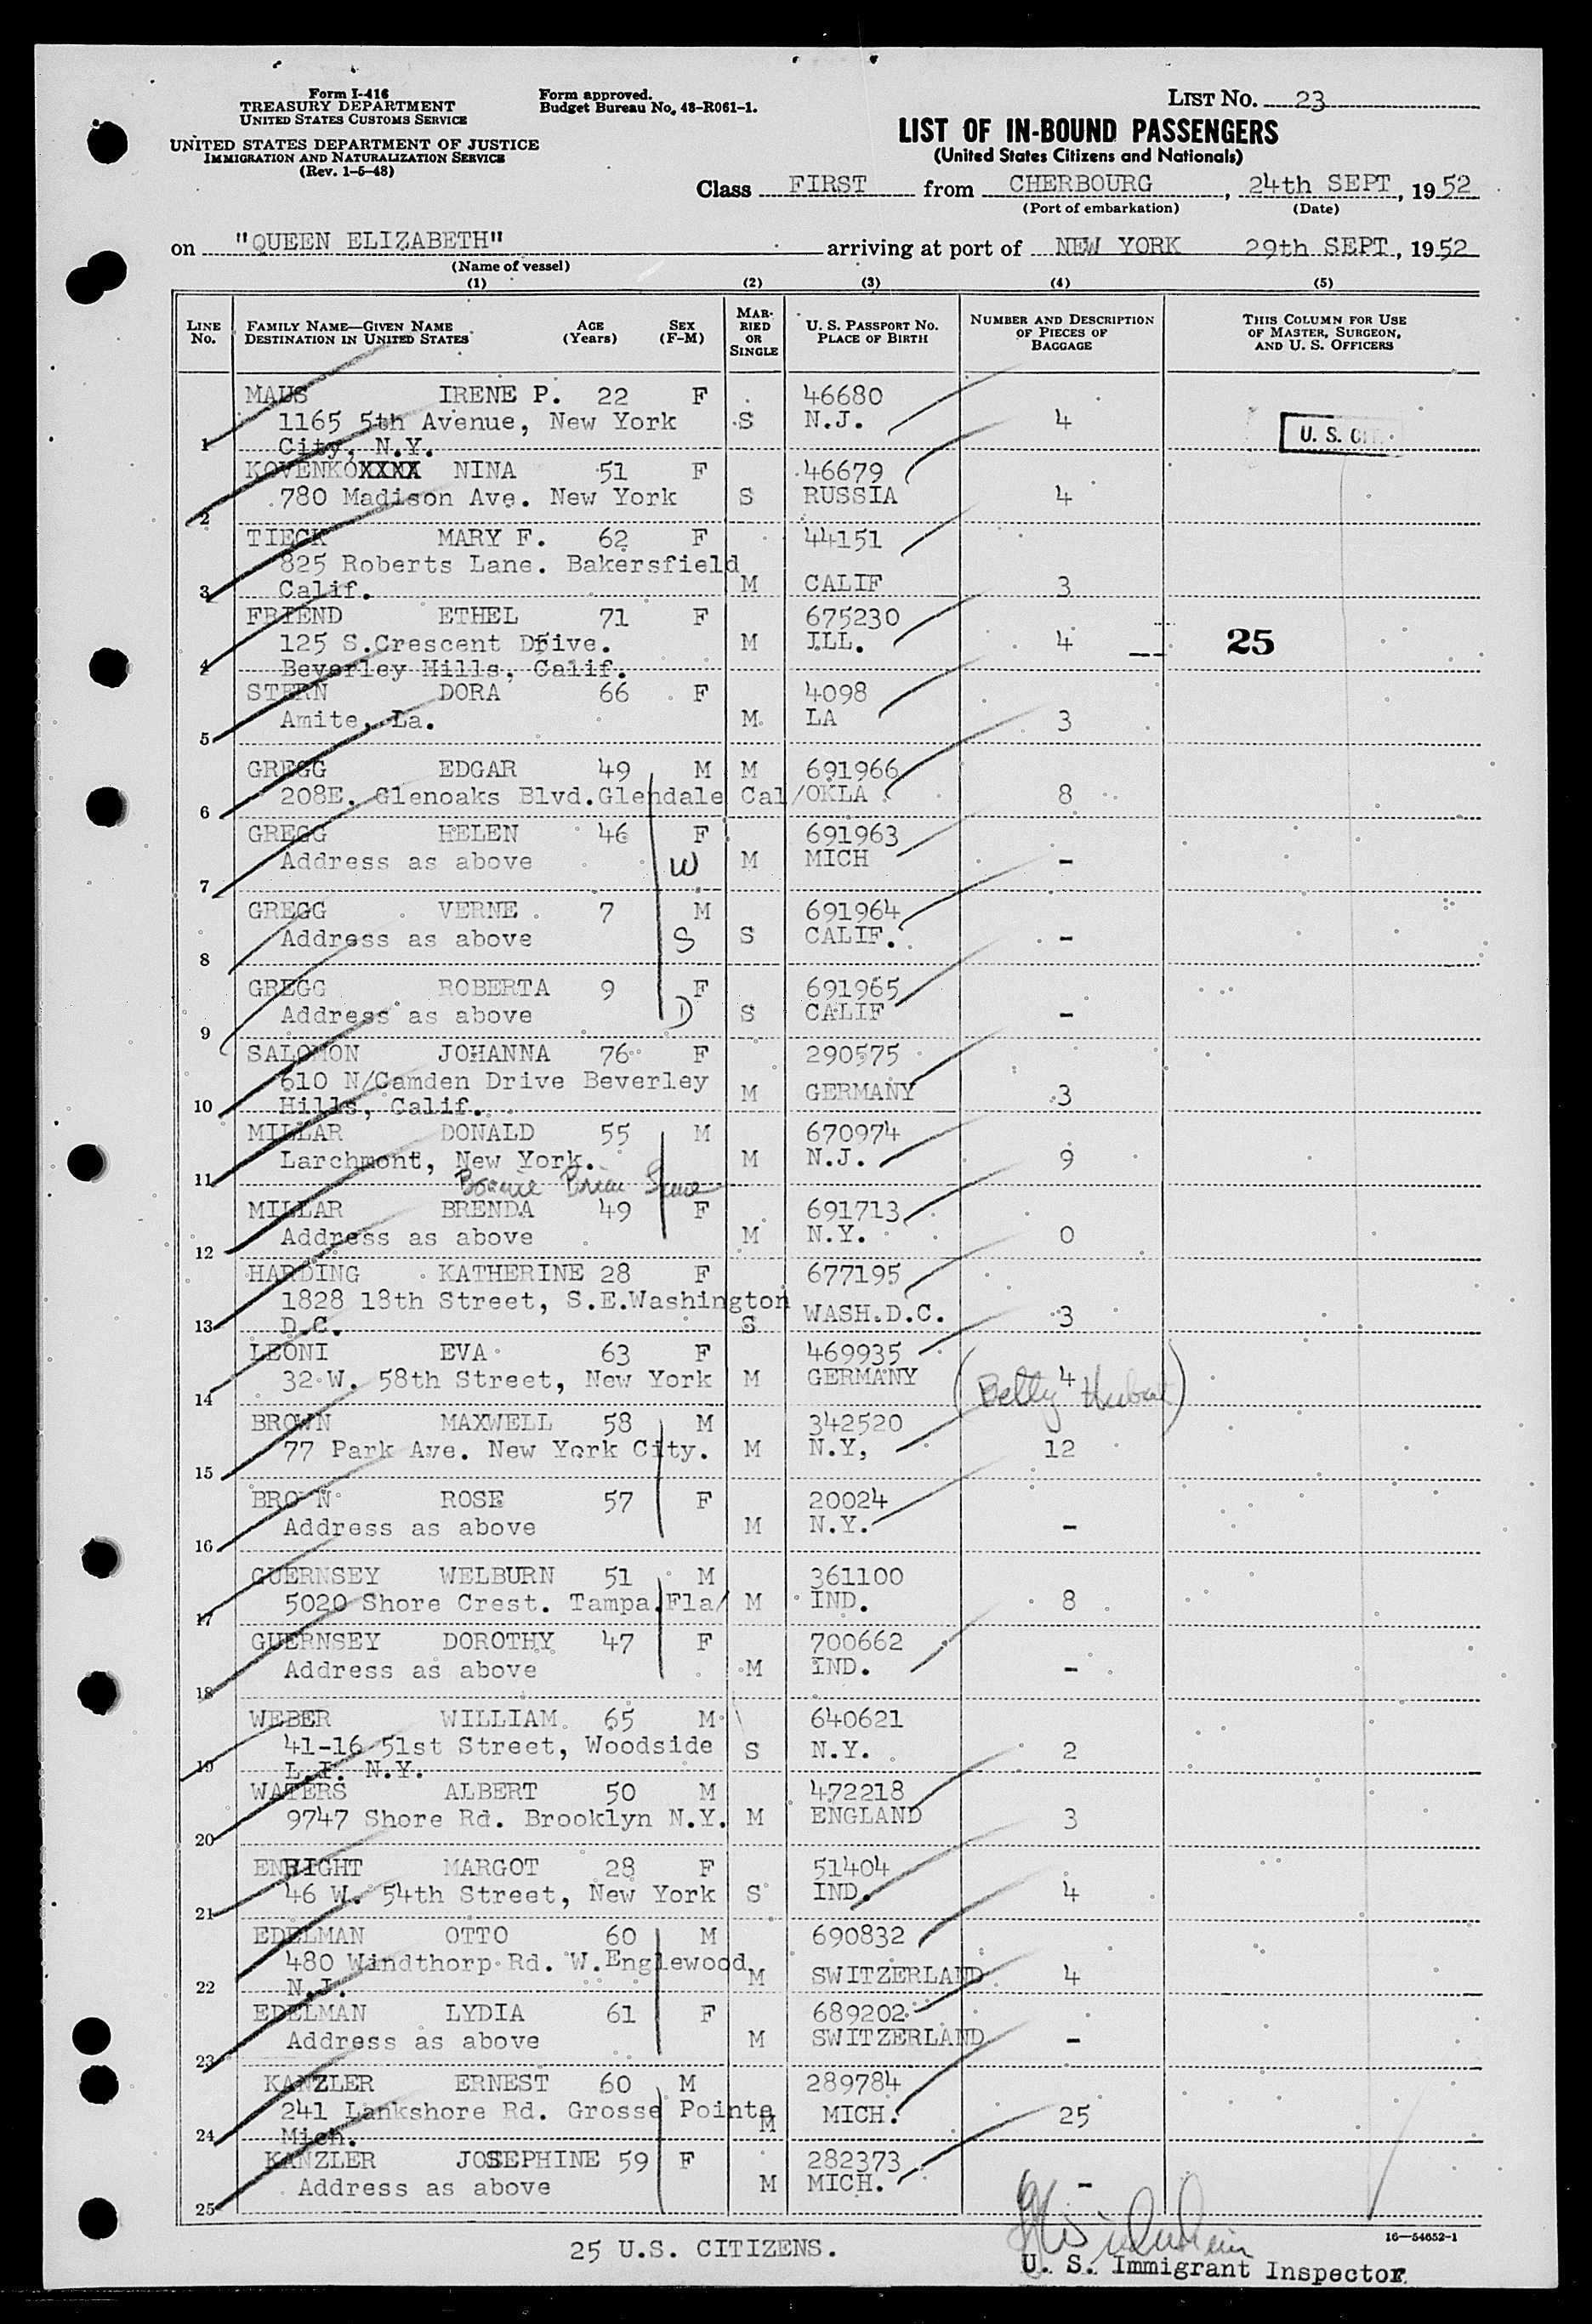 Form I-416
TREASURY DEPARTMENT
UNITED STATES CUSTOMS SERVICE
UNITED STATES DEPARTMENT OF JUSTICE
IMMIGRATION AND NATURALIZATION SERVICE
(Rev. 1-5-48)
Form approved.
Budget Bureau No. 43-R061-1.
LIST NO. 23
LIST OF IN-BOUND PASSENGERS
(United States Citizens and Nationals)
Class FIRST from CHERBOURG, 24th SEPT, 1952
(Port of embarkation) (Date)
on "QUEEN ELIZABETH" arriving at port of NEW YORK 29th SEPT, 1952
(Name of vessel)
(1) (2) (3) (4) (5)
LINE No. FAMILY NAME—GIVEN NAME DESTINATION IN UNITED STATES AGE (Years) SEX (F-M) MARRIED OR SINGLE U. S. PASSPORT NO. PLACE OF BIRTH NUMBER AND DESCRIPTION OF PIECES OF BAGGAGE THIS COLUMN FOR USE OF MASTER, SURGEON, AND U. S. OFFICERS
MAUS IRENE P. 22 F 46680
1165 5th Avenue, New York S N.J. 4 U. S. CIT.
1 City, N.Y.
KOVENKOXXXX NINA 51 F 46679
780 Madison Ave. New York S RUSSIA 4
2
TIECK MARY F. 62 F 44151
825 Roberts Lane. Bakersfield
3 Calif. M CALIF 3
FRIEND ETHEL 71 F 675230
125 S.Crescent Drive. M ILL. 4 25
4 Beverley Hills, Calif.
STERN DORA 66 F 4098
Amite, La. M LA 3
5
GREGG EDGAR 49 M M 691966
208E. Glenoaks Blvd.Glendale Cal/OKLA 8
6
GREGG HELEN 46 F 691963
Address as above W M MICH -
7
GREGG VERNE 7 M 691964
Address as above S S CALIF. -
8
GREGG ROBERTA 9 F 691965
Address as above D S CALIF -
9
SALOMON JOHANNA 76 F 290575
610 N/Camden Drive Beverley M GERMANY 3
10 Hills, Calif.
MILLAR DONALD 55 M 670974
Larchmont, New York. M N.J. 9
11
MILLAR BRENDA 49 F 691713
Address as above M N.Y. 0
12
HARDING KATHERINE 28 F 677195
1828 18th Street, S.E.Washington WASH.D.C. 3
13 D.C. S
LEONI EVA 63 F 469935
32 W. 58th Street, New York M GERMANY 4
14 (Betty)
BROWN MAXWELL 58 M 342520
77 Park Ave. New York City. M N.Y, 12
15
BROWN ROSE 57 F 20024
Address as above M N.Y. -
16
GUERNSEY WELBURN 51 M 361100
5020 Shore Crest. Tampa.Fla/ M IND. 8
17
GUERNSEY DOROTHY 47 F 700662
Address as above M IND. -
18
WEBER WILLIAM 65 M 640621
41-16 51st Street, Woodside S N.Y. 2
19 L.I. N.Y.
WATERS ALBERT 50 M 472218
9747 Shore Rd. Brooklyn N.Y. M ENGLAND 3
20
ENRIGHT MARGOT 28 F 51404
46 W. 54th Street, New York S IND. 4
21
EDELMAN OTTO 60 M 690832
480 Windthorp Rd. W.Englewood M SWITZERLAND 4
22 N.J.
EDELMAN LYDIA 61 F 689202
Address as above M SWITZERLAND -
23
KANZLER ERNEST 60 M 289784
241 Lankshore Rd. Grosse Pointe M MICH. 25
24 Mich.
KANZLER JOSEPHINE 59 F 282373
Address as above M MICH. -
25
16—54652-1
25 U.S. CITIZENS.
U. S. Immigrant Inspector